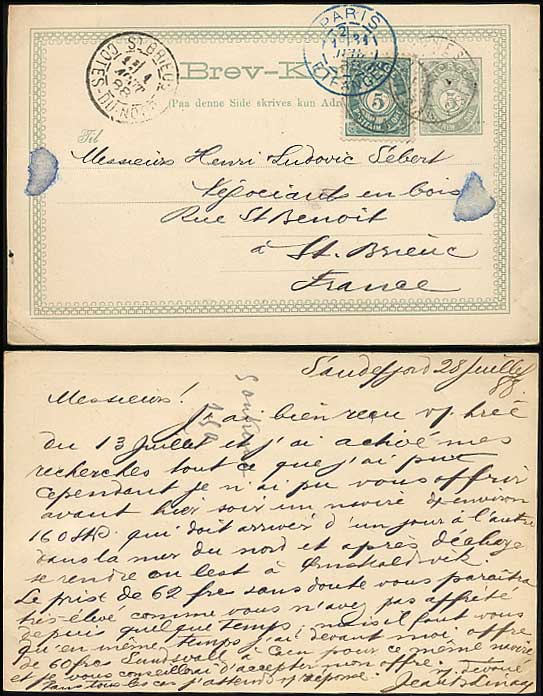 PARIS
ETRANGER
ST BRIEUC
COTES-DU-NORD
Brev-K
(Paa denne Side skrives kun Adr
5
5
Til
Messieurs Henri Ludovic Sébert
Négociants en bois
Rue St Benoit
à St. Brieuc
France
Sandefjord 28 Juillet
88.
Messieurs!
J'ai bien reçu v/
du 13 Juillet et j'ai activé mes
recherches tout ce que j'ai pu
cependant je n'ai pu vous offrir
avant hier soir un navire d'environ
160 Std. qui doit arriver d'un jour à l'autre
dans la mer du nord et après
se rendre en lest à Ornskoldsvik.
Le prix de 62 frcs sans doute vous paraîtra
très élevé comme vous n'avez pas affrété
depuis quelque temps, mais il faut vous
qu'en même temps j'ai devant moi offre
de 60 frcs Sundsvall à Caen pour ce même navire
et je vous conseillerai d'accepter mon offre.
Dans tous les cas j'attends réponse.